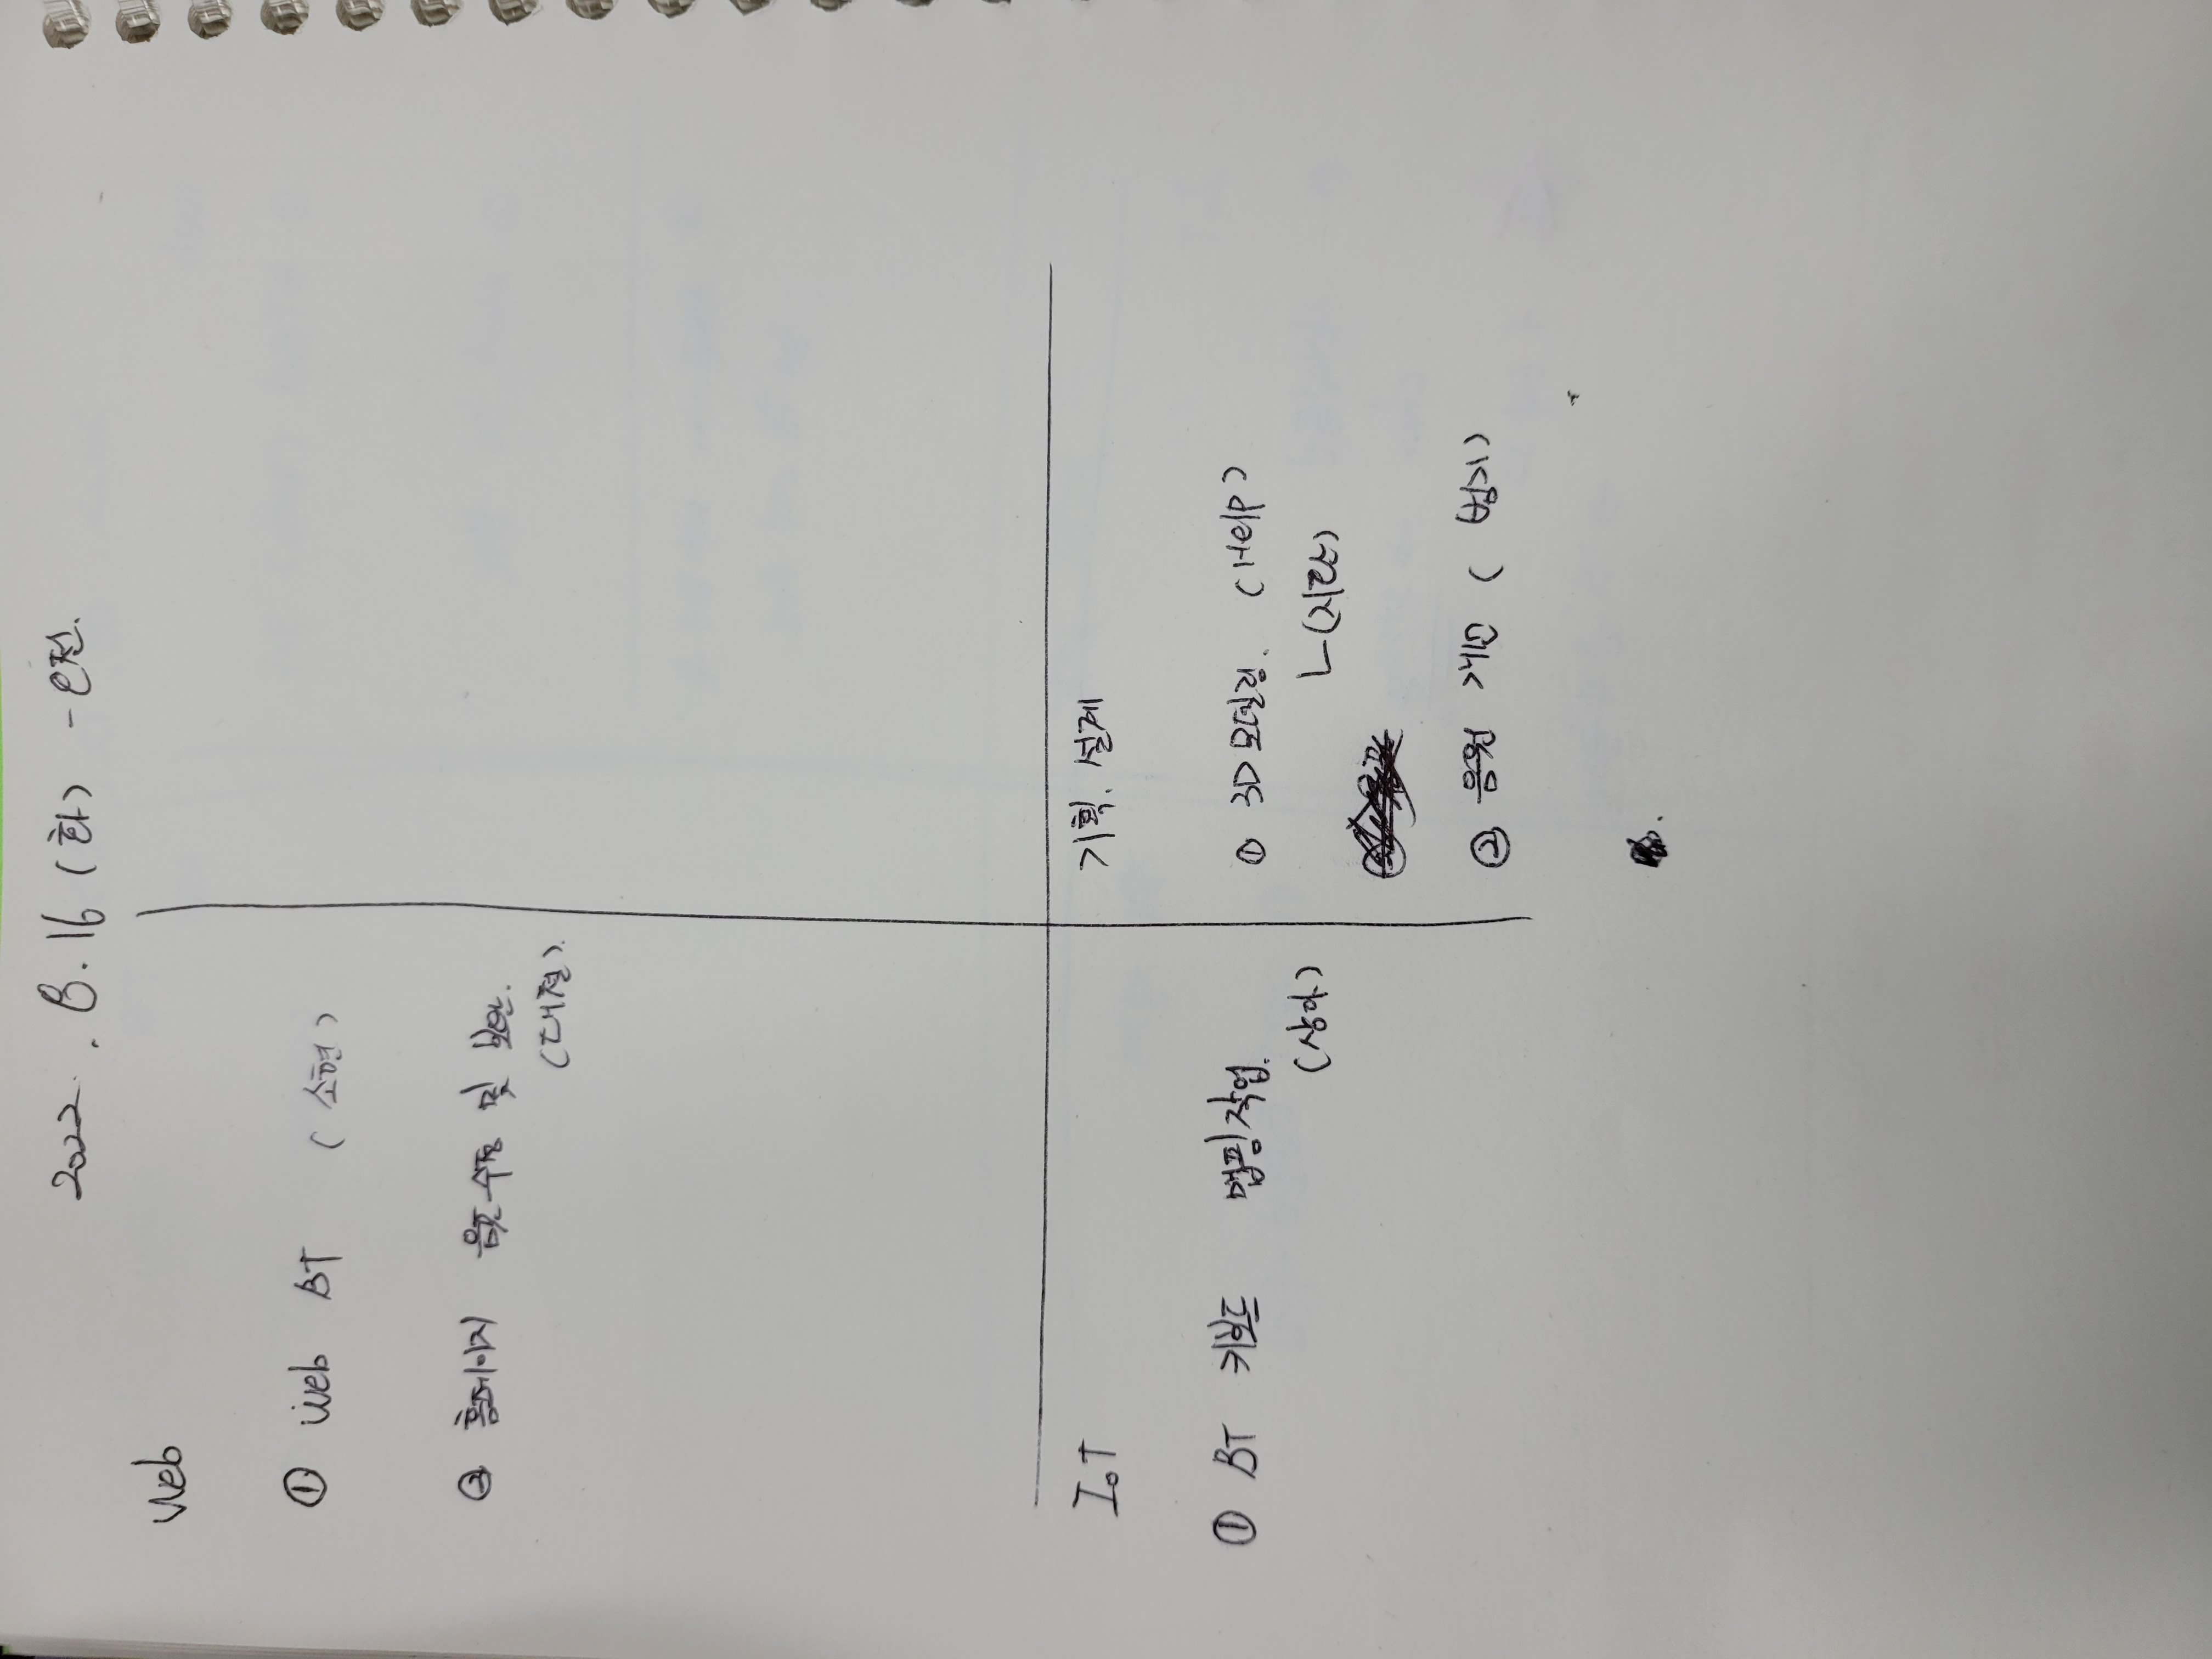 2022. 8. 16 (화) - 오전.
Web
① Web BT (소현)
② 홈페이지 음표 수정 및 보완.
(대철).
IoT
① BT 키보드 맵핑작업.
(상아)
기획. 설계
① 3D 모델링. (Help)
ㄴ(지란)
② 음원 개면 (범기)